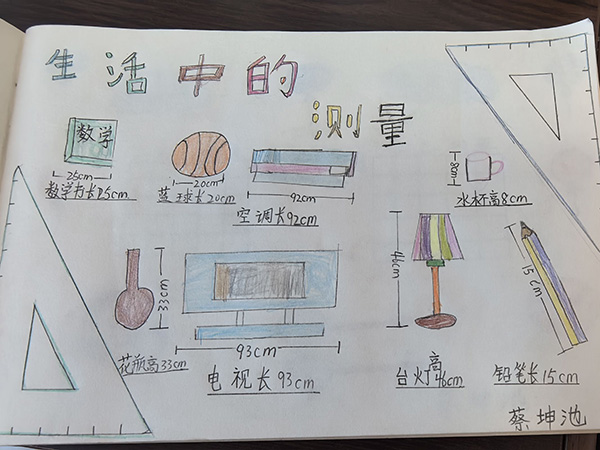 生活中的
测量
数学
25cm
数学书长25cm
20cm
蓝球长20cm
92cm
空调长92cm
8cm
水杯高8cm
33cm
花瓶高33cm
93cm
电视长93cm
46cm
台灯高46cm
15cm
铅笔长15cm
蔡坤池